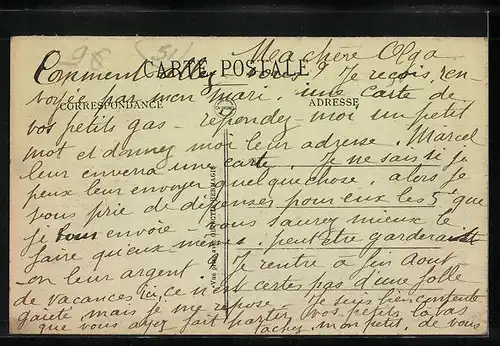 98
Ma chère Olga
Comment allez vous? Je reçois, ren-
CARTE POSTALE
voyée par mon mari, une carte de
CORRESPONDANCE
ADRESSE
vos petits gas - répondez-moi un petit
mot et donnez moi leur adresse. Marcel
leur enverra une carte. Je ne sais si je
peux leur envoyer quelque chose, alors je
vous prie de dépenser pour eux les 5f que
je vous envoie - vous saurez mieux le
faire qu'eux-mêmes. peut être garderait
on leur argent. Je rentre à fin Aout
de vacances ici, ce n'est certes pas d'une folle
gaieté mais je me repose. Je suis bien contente
que vous ayez fait partir vos petits là bas
tachez, mon petit, de vous